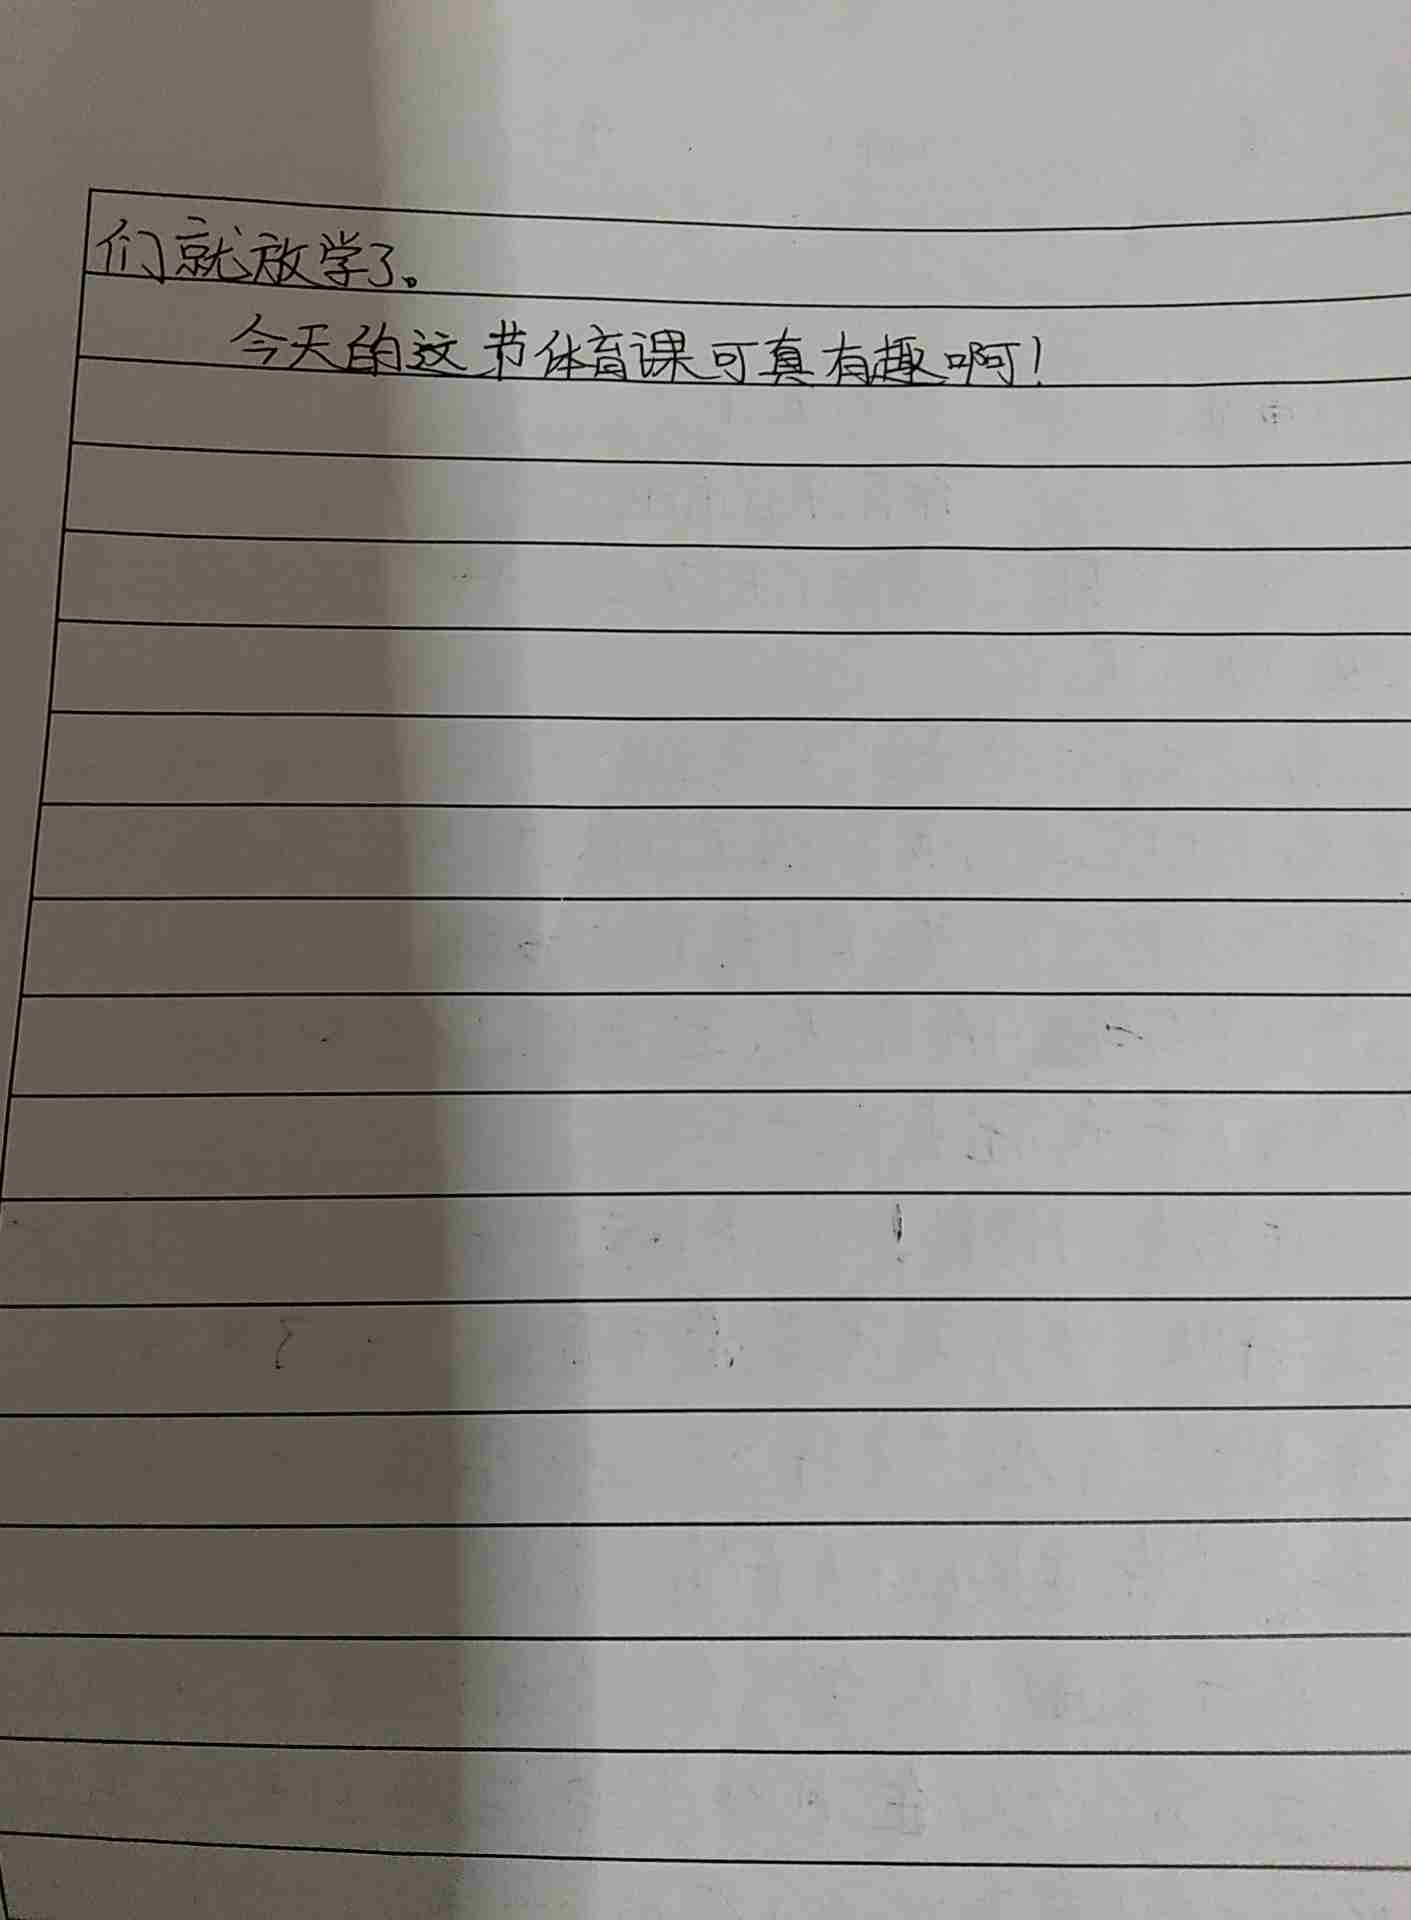 们就放学了。
今天的这节体育课可真有趣啊！